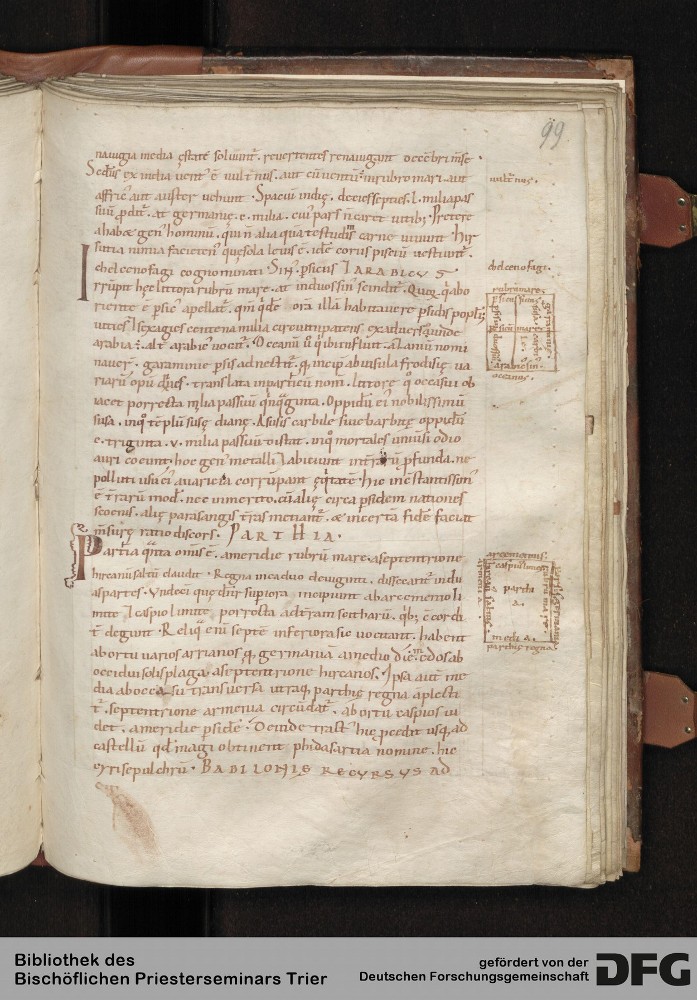 99
nauigia media estate soluunt. reuertentes renauigant decebri mse.
Secds ex india uent' e uult'nus. aut cu uentu: inrubro mari. aut
affric' aut auster uehunt. Spaciu indie. decies septies. l. milia pas
suu pdit. at germanie. c. milia. cui' pars n caret uitib;. Preterea
gen' hominu. qui n alia qua testudinu carne uiuunt. hir
chelcenofagi cognominati Sin'. psicus IARABICUS
Irrupit hec littora rubru mare. at induos sin' scindit. Que q abo
riente e psic' apellat. qm qde ora illa habitauere psidis popli
uities l sexagies centena milia circuitu patens. ex aduerso unde
arabia: alt' arabic' uocat. Oceanu u q ibi influit. Alaniu nomi
nauer. garamnie psis adnectit. q incip ab insula
riaru opu diues. translata in particu nom. littore q occasui ob
iacet porrecta milia passuu qnquaginta. Oppidu ei nobilissimu
susa. inq teplu suse diane. Asusis carbile siue barbite oppidu
e. triginta. v. milia passuu distat. inq mortales uniusi odio
auri coeunt. hoc gen' metalli l abiciunt int raru pfunda. ne
polluti usu ei' auaricia corrupant eqtate. hic inconstantissim'
e traru mod'. nec inmerito. cu alie circa psidem nationes
scoenis. alie parasangis tras metiant. & incerta fide faciat
msure ratio discors. PARTHIA.
Partia quanta omis e. ameridie rubru mare. aseptentrione
hircanu saltu claudit. Regna inea duo deuiginti. disceant indu
as partes. Undeci que dnr supiora incipiunt ab arcemenio li
mite l caspio limite porrecta ad tram scitharu. qb; e cordi
t degunt. Reliq eni septe inferiora sic uocitant. habent
ab ortu uarios arrianos. q. germania a medio die. medos ab
occidui solis plaga. aseptentrione hircanos. Ipsa aut me
dia ab occasu transuersa utraq. parthie regna aplecti
t. septentrione armenia circudat. ab ortu caspios ui
det. ameridie pside. Deinde tract' hic pcedit usq. ad
castellu qd magi obtinent phidasartia nomine. hic
cyri sepulchru. BABILONIS RECURSUS AD
uult'nus.
chelcenofagi.
rubru mare.
psicus sinus
psicu mare
arabicsin.
oceanus.
arcemenius.
caspius limes
armenia.
hircanu saltus.
parthi
a.
rubru mare.
media.
parthie regna.
Bibliothek des
Bischöflichen Priesterseminars Trier
gefördert von der
Deutschen Forschungsgemeinschaft
DFG